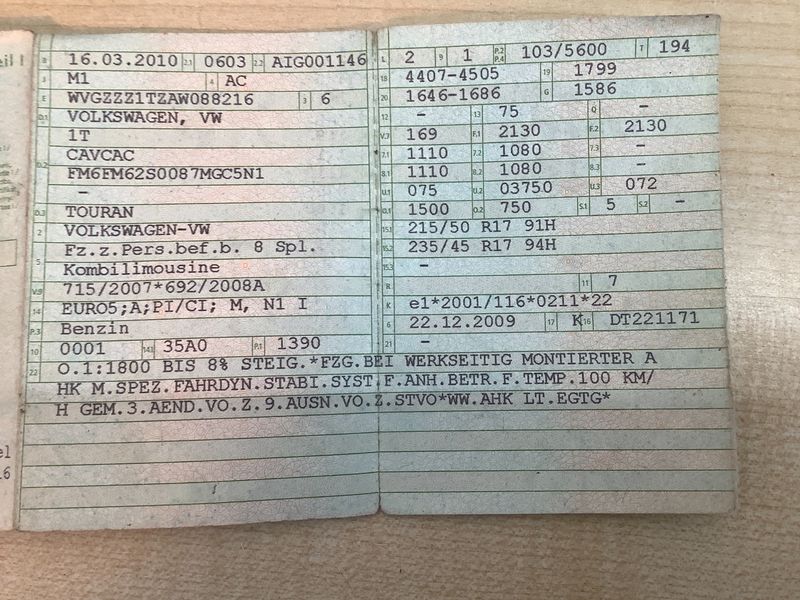 eil I
B 16.03.2010 2.1 0603 2.2 AIG001146
J M1 4 AC
E WVGZZZ1TZAW088216 3 6
D.1 VOLKSWAGEN, VW
1T
D.2 CAVCAC
FM6FM62S0087MGC5N1
–
D.3 TOURAN
2 VOLKSWAGEN-VW
5 Fz.z.Pers.bef.b. 8 Spl.
Kombilimousine
V.9 715/2007*692/2008A
14 EURO5;A;PI/CI; M, N1 I
P.3 Benzin
10 0001 14.1 35A0 P.1 1390
L 2 9 1 P.2 P.4 103/5600 T 194
18 4407-4505 19 1799
20 1646-1686 G 1586
12 – 13 75 Q –
V.7 169 F.1 2130 F.2 2130
7.1 1110 7.2 1080 7.3 –
8.1 1110 8.2 1080 8.3 –
U.1 075 U.2 03750 U.3 072
O.1 1500 O.2 750 S.1 5 S.2 –
15.1 215/50 R17 91H
15.2 235/45 R17 94H
15.3 –
R 11 7
K e1*2001/116*0211*22
6 22.12.2009 17 K 16 DT221171
21 –
22 O.1:1800 BIS 8% STEIG.*FZG.BEI WERKSEITIG MONTIERTER A
HK M.SPEZ.FAHRDYN.STABI.SYST.F.ANH.BETR.F.TEMP.100 KM/
H GEM.3.AEND.VO.Z.9.AUSN.VO.Z.STVO*WW.AHK LT.EGTG*
el
16